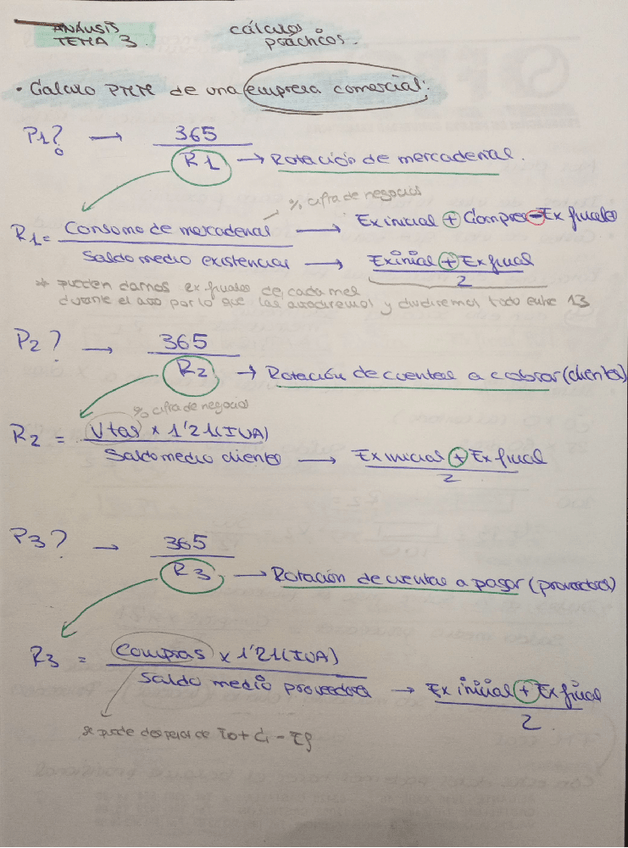 ANÁLISIS
TEMA 3.
cálculos
prácticos.
• Cálculo PMM de una empresa comercial:
P1? → 365
R1 → Rotación de mercaderías.
% cifra de negocios
R1 = Consumo de mercaderías → Ex inicial + Compras - Ex finales
Saldo medio existencias → Ex inicial + Ex final
2
* pueden darnos ex finales de cada mes
durante el año por lo que las añadiremos y dividiremos todo entre 13
P2? → 365
R2 → Rotación de cuentas a cobrar (clientes)
% cifra de negocios
R2 = Vtas x 1'21 (IVA)
Saldo medio clientes → Ex inicial + Ex final
2
P3? → 365
R3 → Rotación de cuentas a pagar (proveedores)
R3 = Compras x 1'21 (IVA)
Saldo medio proveedores → Ex inicial + Ex final
2.
* puede despejar de